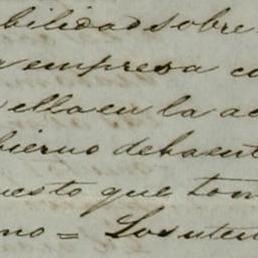 bilidad sobre
empresa co
ella en la ac
bierno de haent
uesto que tom
no = Los uten